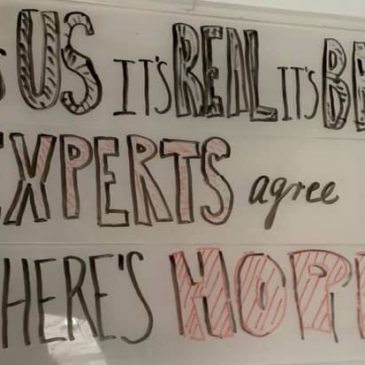 US IT'S REAL IT'S
EXPERTS agree
HERE'S HOPE